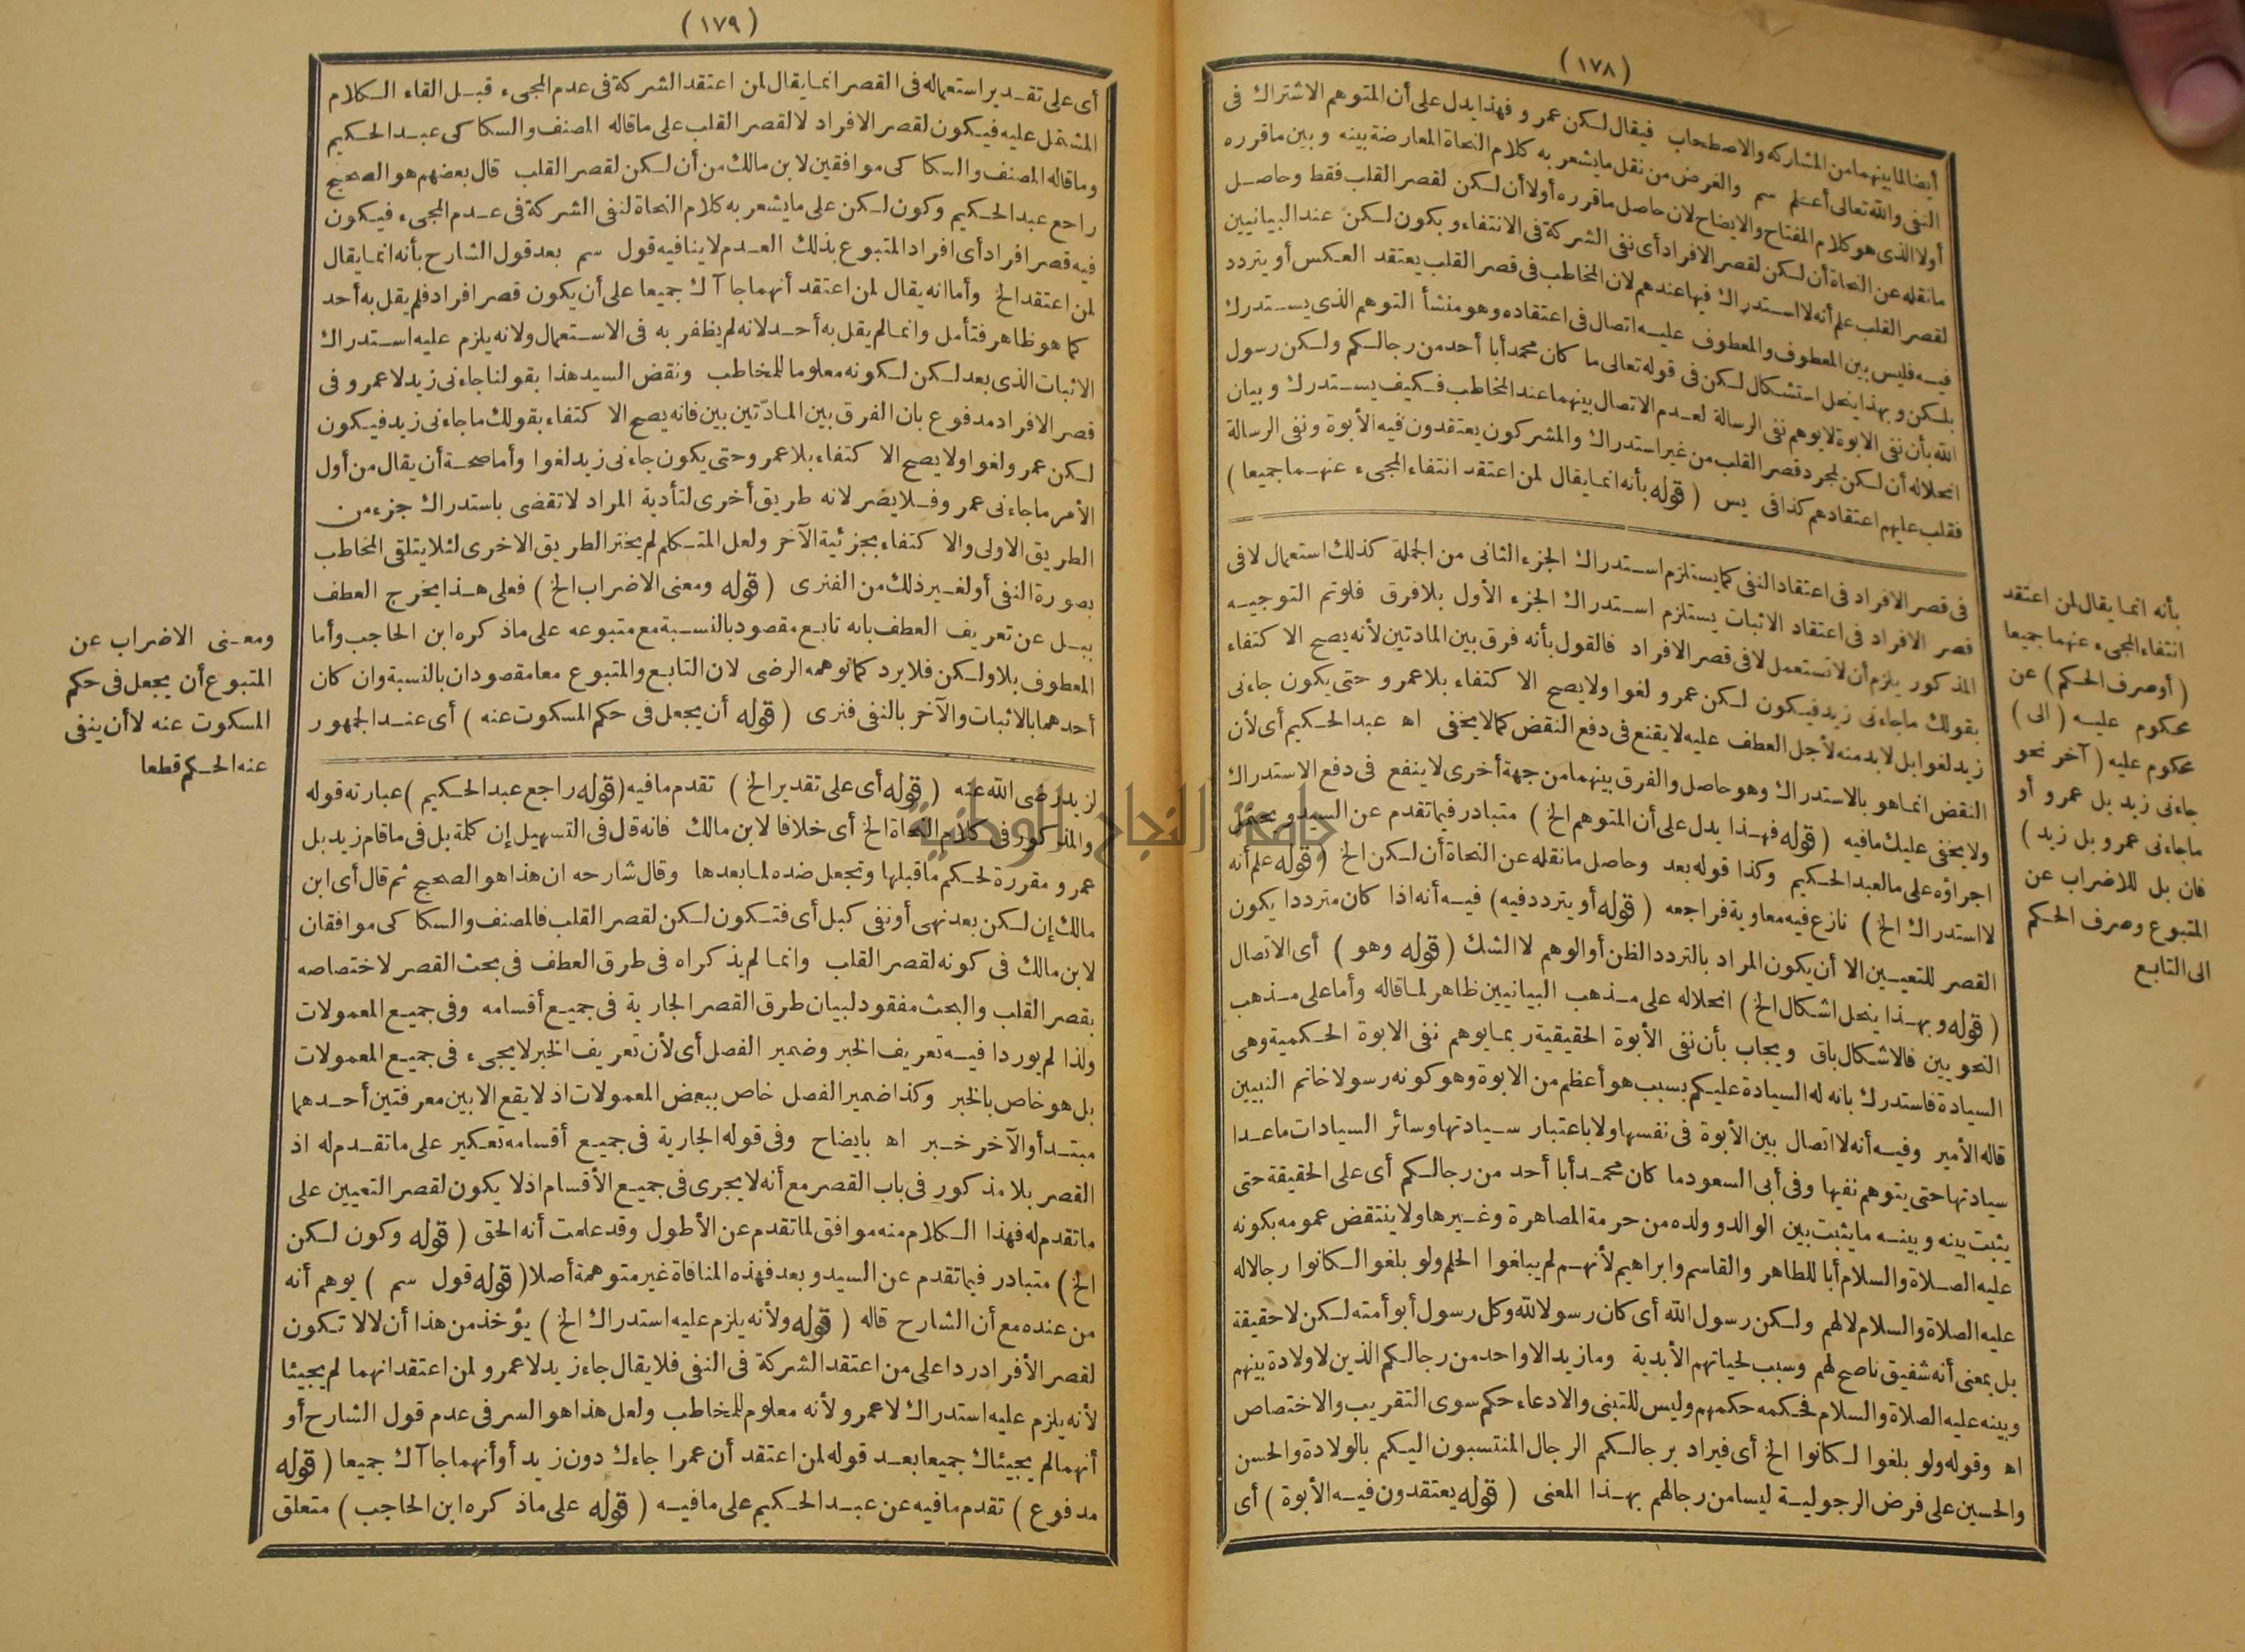 (١٧٨)
أيضا لما بينهما من المشاركة والاصطحاب فيقال لكن عمرو فهذا يدل على أن المتوهم الاشتراك فى
النفى والله تعالى أعلم سم والغرض من نقل ما يشعر به كلام النحاة المعارضة بينه وبين ما قرره
أولا الذى هو كلام المفتاح والايضاح لان حاصل ما قرره أولا أن لكن لقصر القلب فقط وحاصل
ما نقله عن النحاة أن لكن لقصر الافراد أى نفى الشركة فى الانتفاء وبكون لكن عند البيانيين
لقصر القلب علم أنه لا استدراك فيها عندهم لان المخاطب فى قصر القلب يعتقد العكس أو يتردد
فيه فليس بين المعطوف والمعطوف عليه اتصال فى اعتقاده وهو منشأ التوهم الذى يستدرك
بلكن وبهذا ينحل استشكال لكن فى قوله تعالى ما كان محمد أبا أحد من رجالكم ولكن رسول
الله بأن نفى الابوة لا يوهم نفى الرسالة لعدم الاتصال بينهما عند المخاطب فكيف يستدرك وبيان
انحلاله أن لكن لمجرد قصر القلب من غير استدراك والمشركون يعتقدون فيه الأبوة ونفى الرسالة
فقلب عليهم اعتقادهم كذا فى يس ( قوله بأنه انما يقال لمن اعتقد انتفاء المجىء عنهما جميعا )
فى قصر الافراد فى اعتقاد النفى كما يستلزم استدراك الجزء الثانى من الجملة كذلك استعمال لا فى
قصر الافراد فى اعتقاد الاثبات يستلزم استدراك الجزء الأول بلا فرق فلوتم التوجيه
المذكور يلزم أن لا تستعمل لا فى قصر الافراد فالقول بأنه فرق بين المادتين لأنه يصح الا كتفاء
بقولك ما جاءنى زيد فيكون لكن عمرو لغوا ولا يصح الا كتفاء بلا عمرو حتى يكون جاءنى
زيد لغوا بل لا بد منه لأجل العطف عليه لا يقنع فى دفع النقض كما لا يخفى اه عبد الحكيم أى لأن
النقض انما هو بالاستدراك وهو حاصل والفرق بينهما من جهة أخرى لا ينفع فى دفع الاستدراك
ولا يخفى عليك ما فيه ( قوله فهذا يدل على أن المتوهم الخ ) متبادر فيما تقدم عن السيد ويحتمل
اجراؤه على ما لعبد الحكيم وكذا قوله بعد وحاصل ما نقله عن النحاة أن لكن الخ ( قوله علم أنه
لا استدراك الخ ) نازع فيه معاوية فراجعه ( قوله أو يتردد فيه ) فيه أنه اذا كان مترددا يكون
القصر للتعيين الا أن يكون المراد بالتردد الظن أو الوهم لا الشك ( قوله وهو ) أى الاتصال
( قوله وبهذا ينحل اشكال الخ ) انحلاله على مذهب البيانيين ظاهر لما قاله وأما على مذهب
النحويين فالاشكال باق ويجاب بأن نفى الأبوة الحقيقية ربما يوهم نفى الابوة الحكمية وهى
السيادة فاستدرك بانه له السيادة عليكم بسبب هو أعظم من الابوة وهو كونه رسولا خاتم النبيين
قاله الأمير وفيه أنه لا اتصال بين الأبوة فى نفسها ولا باعتبار سيادتها وسائر السيادات ماعدا
سيادتها حتى يتوهم نفيها وفى أبى السعود ما كان محمد أبا أحد من رجالكم أى على الحقيقة حتى
يثبت بينه وبينه ما يثبت بين الوالد وولده من حرمة المصاهرة وغيرها ولا ينتقض عمومه بكونه
عليه الصلاة والسلام أبا للطاهر والقاسم وابراهيم لأنهم لم يبلغوا الحلم ولو بلغوا لكانوا رجالا له
عليه الصلاة والسلام لا لهم ولكن رسول الله أى كان رسولا لله وكل رسول أبو أمته لكن لا حقيقة
بل بمعنى أنه شفيق ناصح لهم وسبب لحياتهم الأبدية وما زيد الا واحد من رجالكم الذين لا ولادة بينهم
وبينه عليه الصلاة والسلام فحكمه حكمهم وليس للتبنى والادعاء حكم سوى التقريب والاختصاص
اه وقوله ولو بلغوا لكانوا الخ أى فيراد برجالكم الرجال المنتسبون اليكم بالولادة والحسن
والحسين على فرض الرجولية ليسا من رجالهم بهذا المعنى ( قوله يعتقدون فيه الأبوة ) أى
بأنه انما يقال لمن اعتقد
انتفاء المجىء عنهما جميعا
( أو صرف الحكم ) عن
محكوم عليه ( الى )
محكوم عليه ( آخر نحو
جاءنى زيد بل عمرو أو
ما جاءنى عمرو بل زيد )
فان بل للاضراب عن
المتبوع وصرف الحكم
الى التابع
(١٧٩)
أى على تقدير استعماله فى القصر انما يقال لمن اعتقد الشركة فى عدم المجىء قبل القاء الكلام
المشتمل عليه فيكون لقصر الافراد لا لقصر القلب على ما قاله المصنف والسكاكى عبد الحكيم
وما قاله المصنف والسكاكى موافقين لابن مالك من أن لكن لقصر القلب قال بعضهم هو الصحيح
راجع عبد الحكيم وكون لكن على ما يشعر به كلام النحاة لنفى الشركة فى عدم المجىء فيكون
فيه قصر افراد أى افراد المتبوع بذلك العدم لا ينافيه قول سم بعد قول الشارح بأنه انما يقال
لمن اعتقد الخ وأما انه يقال لمن اعتقد أنهما جاآك جميعا على أن يكون قصر افراد فلم يقل به أحد
كما هو ظاهر فتأمل وانما لم يقل به أحد لانه لم يظفر به فى الاستعمال ولانه يلزم عليه استدراك
الاثبات الذى بعد لكن لكونه معلوما للمخاطب ونقض السيد هذا بقولنا جاءنى زيد لا عمرو فى
قصر الافراد مدفوع بان الفرق بين المادّتين بين فانه يصح الا كتفاء بقولك ما جاءنى زيد فيكون
لكن عمرو لغوا ولا يصح الا كتفاء بلا عمرو حتى يكون جاءنى زيد لغوا وأما صحة أن يقال من أول
الأمر ما جاءنى عمرو فلا يضر لانه طريق أخرى لتأدية المراد لا تقضى باستدراك جزء من
الطريق الاولى والا كتفاء بجزئية الآخر ولعل المتكلم لم يختر الطريق الاخرى لئلا يتلقى المخاطب
بصورة النفى أو لغير ذلك من الفنرى ( قوله ومعنى الاضراب الخ ) فعلى هذا يخرج العطف
ببل عن تعريف العطف بانه تابع مقصود بالنسبة مع متبوعه على ما ذكره ابن الحاجب وأما
المعطوف بلا ولكن فلا يرد كما توهمه الرضى لان التابع والمتبوع معا مقصودان بالنسبة وان كان
أحدهما بالاثبات والآخر بالنفى فنرى ( قوله أن يجعل فى حكم المسكوت عنه ) أى عند الجمهور
لزيد رضى الله عنه ( قوله أى على تقدير الخ ) تقدم ما فيه ( قوله راجع عبد الحكيم ) عبارته قوله
والمذكور فى كلام النحاة الخ أى خلافا لابن مالك فانه قال فى التسهيل إن كلمة بل فى ما قام زيد بل
عمرو مقررة لحكم ما قبلها وتجعل ضده لما بعدها وقال شارحه ان هذا هو الصحيح ثم قال أى ابن
مالك إن لكن بعد نهى أو نفى كبل أى فتكون لكن لقصر القلب فالمصنف والسكاكى موافقان
لابن مالك فى كونه لقصر القلب وانما لم يذكراه فى طرق العطف فى بحث القصر لاختصاصه
بقصر القلب والبحث مفقود لبيان طرق القصر الجارية فى جميع أقسامه وفى جميع المعمولات
ولذا لم يوردا فيه تعريف الخبر وضمير الفصل أى لأن تعريف الخبر لا يجىء فى جميع المعمولات
بل هو خاص بالخبر وكذا ضمير الفصل خاص ببعض المعمولات اذ لا يقع الا بين معرفتين أحدهما
مبتدأ والآخر خبر اه بايضاح وفى قوله الجارية فى جميع أقسامه تعكير على ما تقدم له اذ
القصر بلا مذكور فى باب القصر مع أنه لا يجرى فى جميع الأقسام اذ لا يكون لقصر التعيين على
ما تقدم له فهذا الكلام منه موافق لما تقدم عن الأطول وقد علمت أنه الحق ( قوله وكون لكن
الخ ) متبادر فيما تقدم عن السيد وبعد فهذه المنافاة غير متوهمة أصلا ( قوله قول سم ) يوهم أنه
من عنده مع أن الشارح قاله ( قوله ولأنه يلزم عليه استدراك الخ ) يؤخذ من هذا أن لا لا تكون
لقصر الأفراد ردا على من اعتقد الشركة فى النفى فلا يقال جاء زيد لا عمرو لمن اعتقد انهما لم يجيئا
لأنه يلزم عليه استدراك لا عمرو لأنه معلوم للمخاطب ولعل هذا هو السر فى عدم قول الشارح أو
أنهما لم يجيئاك جميعا بعد قوله لمن اعتقد أن عمرا جاءك دون زيد أو أنهما جاآك جميعا ( قوله
مدفوع ) تقدم ما فيه عن عبد الحكيم على ما فيه ( قوله على ما ذكره ابن الحاجب ) متعلق
ومعنى الاضراب عن
المتبوع أن يجعل فى حكم
المسكوت عنه لا أن ينفى
عنه الحكم قطعا
جامعة النجاح الوطنية